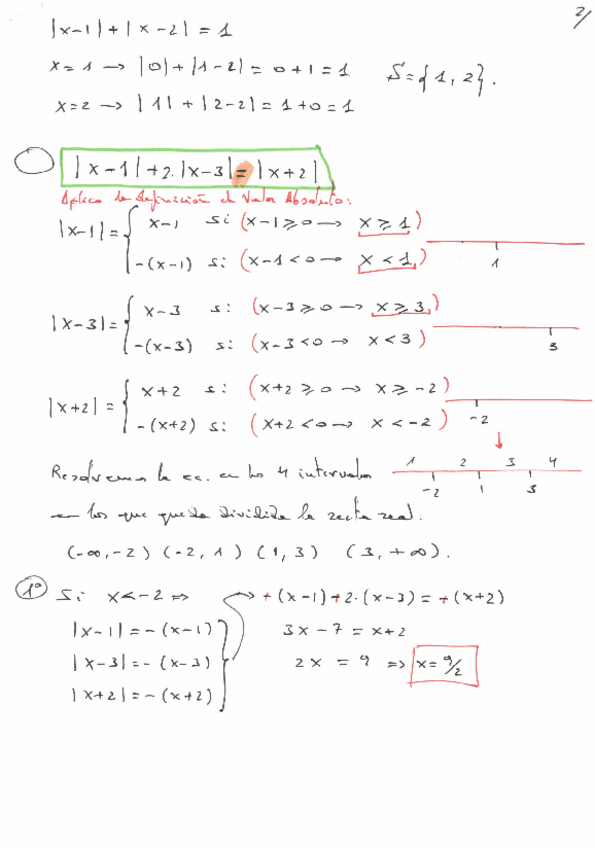 2/
|x-1|+|x-2|=1
x=1 → |0|+|1-2|=0+1=1
S={1,2}.
x=2 → |1|+|2-2|=1+0=1
|x-1|+2·|x-3|=|x+2|
Aplico la definición de Valor Absoluto:
|x-1|= { x-1 si (x-1≥0 → x≥1)
-(x-1) si (x-1<0 → x<1)
1
|x-3|= { x-3 si (x-3≥0 → x≥3)
-(x-3) si (x-3<0 → x<3)
3
|x+2|= { x+2 si (x+2≥0 → x≥-2)
-(x+2) si (x+2<0 → x<-2)
-2
↓
Resolvemos la ec. en los 4 intervalos
1 2 3 4
-2 1 3
en los que queda dividida la recta real.
(-∞,-2) (-2,1) (1,3) (3,+∞).
1º Si x<-2 ⇒ +(x-1)+2·(x-3)=+(x+2)
|x-1|=-(x-1) 3x-7=x+2
|x-3|=-(x-3) 2x=9 ⇒ x=9/2
|x+2|=-(x+2)